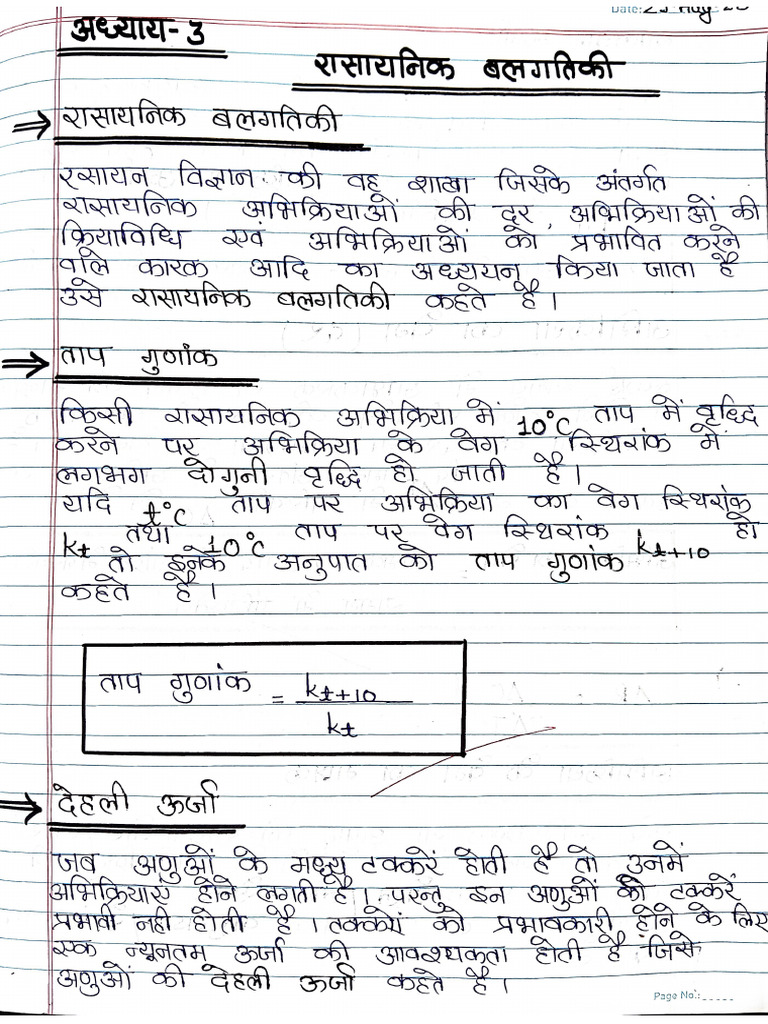 Date: 25 Aug 25
अध्याय-3
रासायनिक बलगतिकी
⇒ रासायनिक बलगतिकी
रसायन विज्ञान की वह शाखा जिसके अंतर्गत
रासायनिक अभिक्रियाओं की दर, अभिक्रियाओं की
क्रियाविधि एवं अभिक्रियाओं को प्रभावित करने
वाले कारक आदि का अध्ययन किया जाता है
उसे रासायनिक बलगतिकी कहते है।
⇒ ताप गुणांक
किसी रासायनिक अभिक्रिया में 10°C ताप में वृध्दि
करने पर अभिक्रिया के वेग स्थिरांक में
लगभग दोगुनी वृध्दि हो जाती है।
यदि t°C ताप पर अभिक्रिया का वेग स्थिरांक
kt तथा 10°C ताप पर वेग स्थिरांक kt+10 हो
तो इनके अनुपात को ताप गुणांक
कहते है।
ताप गुणांक = kt+10
kt
⇒ देहली ऊर्जा
जब अणुओं के मध्य टक्करें होती है तो उनमें
अभिक्रियाएं होने लगती है। परन्तु इन अणुओं की टक्करें
प्रभावी नही होती है। टक्करों को प्रभावकारी होने के लिए
एक न्यूनतम ऊर्जा की आवश्यकता होती है जिसे
अणुओं की देहली ऊर्जा कहते है।
Page No.: